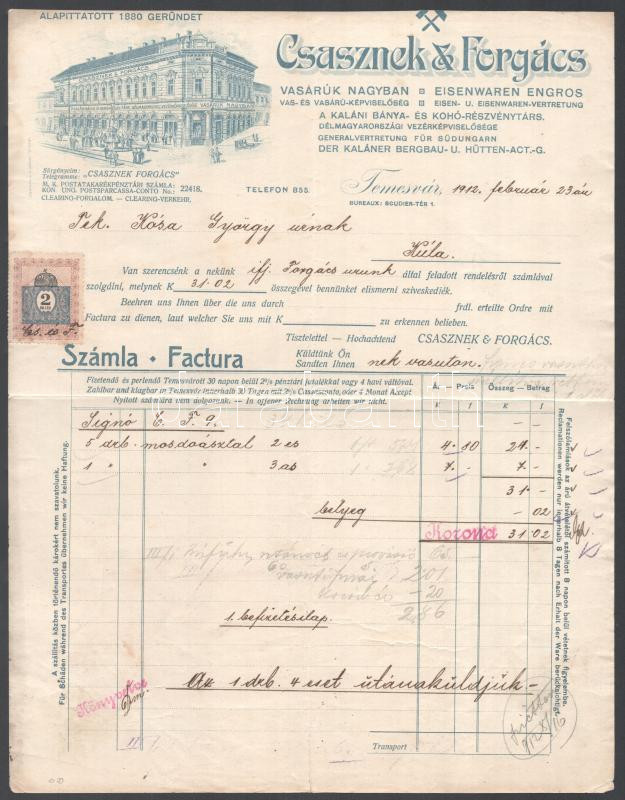 ALAPITTATOTT 1880 GERÜNDET
Csasznek & Forgács
VASÁRÚK NAGYBAN EISENWAREN ENGROS
VAS- ÉS VASÁRÚ-KÉPVISELŐSÉG EISEN- U. EISENWAREN-VERTRETUNG
A KALÁNI BÁNYA- ÉS KOHÓ-RÉSZVÉNYTÁRS.
DÉLMAGYARORSZÁGI VEZÉRKÉPVISELŐSÉGE
GENERALVERTRETUNG FÜR SÜDUNGARN
DER KALÁNER BERGBAU- U. HÜTTEN-ACT.-G.
Sürgönyeim:
Telegramme: „CSASZNEK FORGÁCS"
M. K. POSTATAKARÉKPÉNZTÁRI SZÁMLA:
KÖN. UNG. POSTSPARCASSA-CONTO No.: 22418.
CLEARING-FORGALOM. — CLEARING-VERKEHR.
TELEFON 855.
Temesvár, 1912. február 23án
BUREAUX: SCUDIER-TÉR 1.
Tek. Kósa György úrnak
Kúla.
2
Cs. és F.
Van szerencsénk a nekünk ifj. Forgács urunk által feladott rendelésről számlával
szolgálni, melynek K 31.02 összegével bennünket elismerni sziveskedjék.
Beehren uns Ihnen über die uns durch frdl. erteilte Ordre mit
Factura zu dienen, laut welcher Sie uns mit K zu erkennen belieben.
Tisztelettel — Hochachtend CSASZNEK & FORGÁCS.
Számla • Factura
Küldtünk Ön
Sandten Ihnen nek vasuton.
Fizetendő és perlendő Temesvárott 30 napon belül 2% pénztári jutalékkal vagy 4 havi váltóval.
Zahlbar und klagbar in Temesvár innerhalb 30 Tagen mit 2% Cassaskonto, oder 4 Monat Accept
Nyitott számlára nem dolgozunk. — In offener Rechnung arbeiten wir nicht.
Ár — Preis Összeg — Betrag
K f K f
Signó C. F. 9. – –
5 drb. mosdóasztal 2 es 4.80 24.–
1 " " 3 as 7.– 7.–
31.–
bélyeg – 02
Korona 31 02
201
– 20
286
1. befizetésilap.
Az 1 drb. 4 eset utánaküldjük
Könyvelve
Transport
A szállítás közben történendő károkért nem szavatolunk.
Für Schäden während des Transportes übernehmen wir keine Haftung.
Felszólamlások az árú átvételétől számított 8 napon belül vétetnek figyelembe.
Reclamationen werden nur innerhalb 8 Tagen nach Erhalt der Ware berücksichtigt.